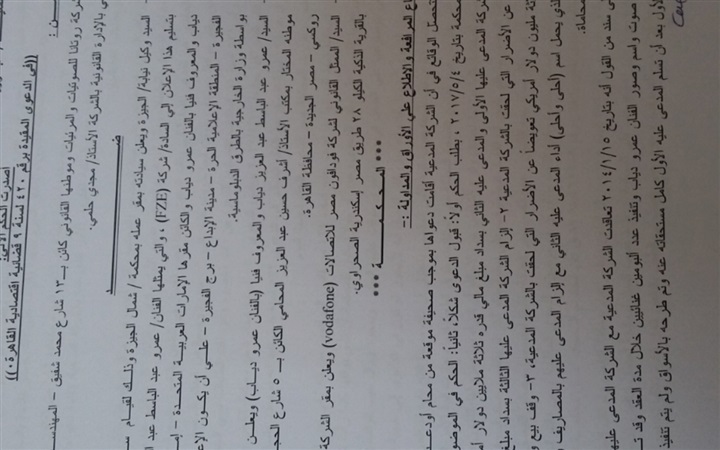 ((في الدعوى المقيدة برقم ٤٢٠ لسنة ٩ قضائية اقتصادية القاهرة))
أصدرت الحكم الآتي:
شركة روتانا للصوتيات والمرئيات وموطنها القانوني كائن بـ ١٣ شارع محمد شفيق – المهندسين
بالإدارة القانونية بالشركة الأستاذ/ مجدي حلمي.
ضـــــــد
السيد وكيل نيابة/ الجيزة ويعلن سيادته بمقر عمله بمحكمة / شمال الجيزة وذلك لقيام
بتسليم هذا الإعلان إلى السادة/ شركة (FZE) ، والتي يمثلها الفنان/ عمرو عبد الباسط عبد
دياب والمعروف فنيا بالفنان عمرو دياب والكائن مقرها الإمارات العربية المتحدة –
الفجيرة – المنطقة الإعلامية الحرة – مدينة الإبداع – برج الفجيرة – على أن يكون
بواسطة وزارة الخارجية بالطرق الدبلوماسية.
– السيد/ عمرو عبد الباسط عبد العزيز دياب والمعروف فنيا (بالفنان عمرو دياب) ويعلن
موطنه المختار بمكتب الأستاذ/ أشرف حسين عبد العزيز المحامي الكائن بـ ٥ شارع
روكسي – مصر الجديدة – محافظة القاهرة.
– السيد/ الممثل القانوني لشركة فودافون مصر للاتصالات (vodafone) ويعلن بمقر الشركة
بالقرية الذكية الكيلو ٢٨ طريق مصر إسكندرية الصحراوي.
*** المحكمـــــة ***
المرافعة والاطلاع على الأوراق و المداولة :-
تتحصل الوقائع في ان الشركة المدعية أقامت دعواها بموجب صحيفة موقعة من محام
محكمة بتاريخ ٢٠١٧/٥/٤ ، بطلب الحكم أولا: قبول الدعوى شكلا، ثانيا: الحكم في
شركة المدعى عليها الأولى والمدعى عليه الثاني بسداد مبلغ مالي قدره ثلاثة ملايين دولار
عن الأضرار التي لحقت بالشركة المدعية ٢- إلزام الشركة المدعى عليها الثالثة بسداد
مليون دولار أمريكي تعويضا عن الأضرار التي لحقت بالشركة المدعية، ٣- وقف بيع
الذي يحمل اسم (أحلى وأحلى) أداء المدعى عليه الثاني مع إلزام المدعى عليهم بالمصاريف
محاماة.
على سند من القول أنه بتاريخ ٢٠١٤/١/١٥ تعاقدت الشركة المدعية مع الشركة المدعى عليها
صوت واسم وصور الفنان عمرو دياب وتنفيذ عدد ألبومين غنائيين خلال مدة العقد وقد
الأول بعد أن تسلم المدعى عليه الأول كامل مستحقاته عنه وتم طرحه بالأسواق ولم يتم تنفيذ